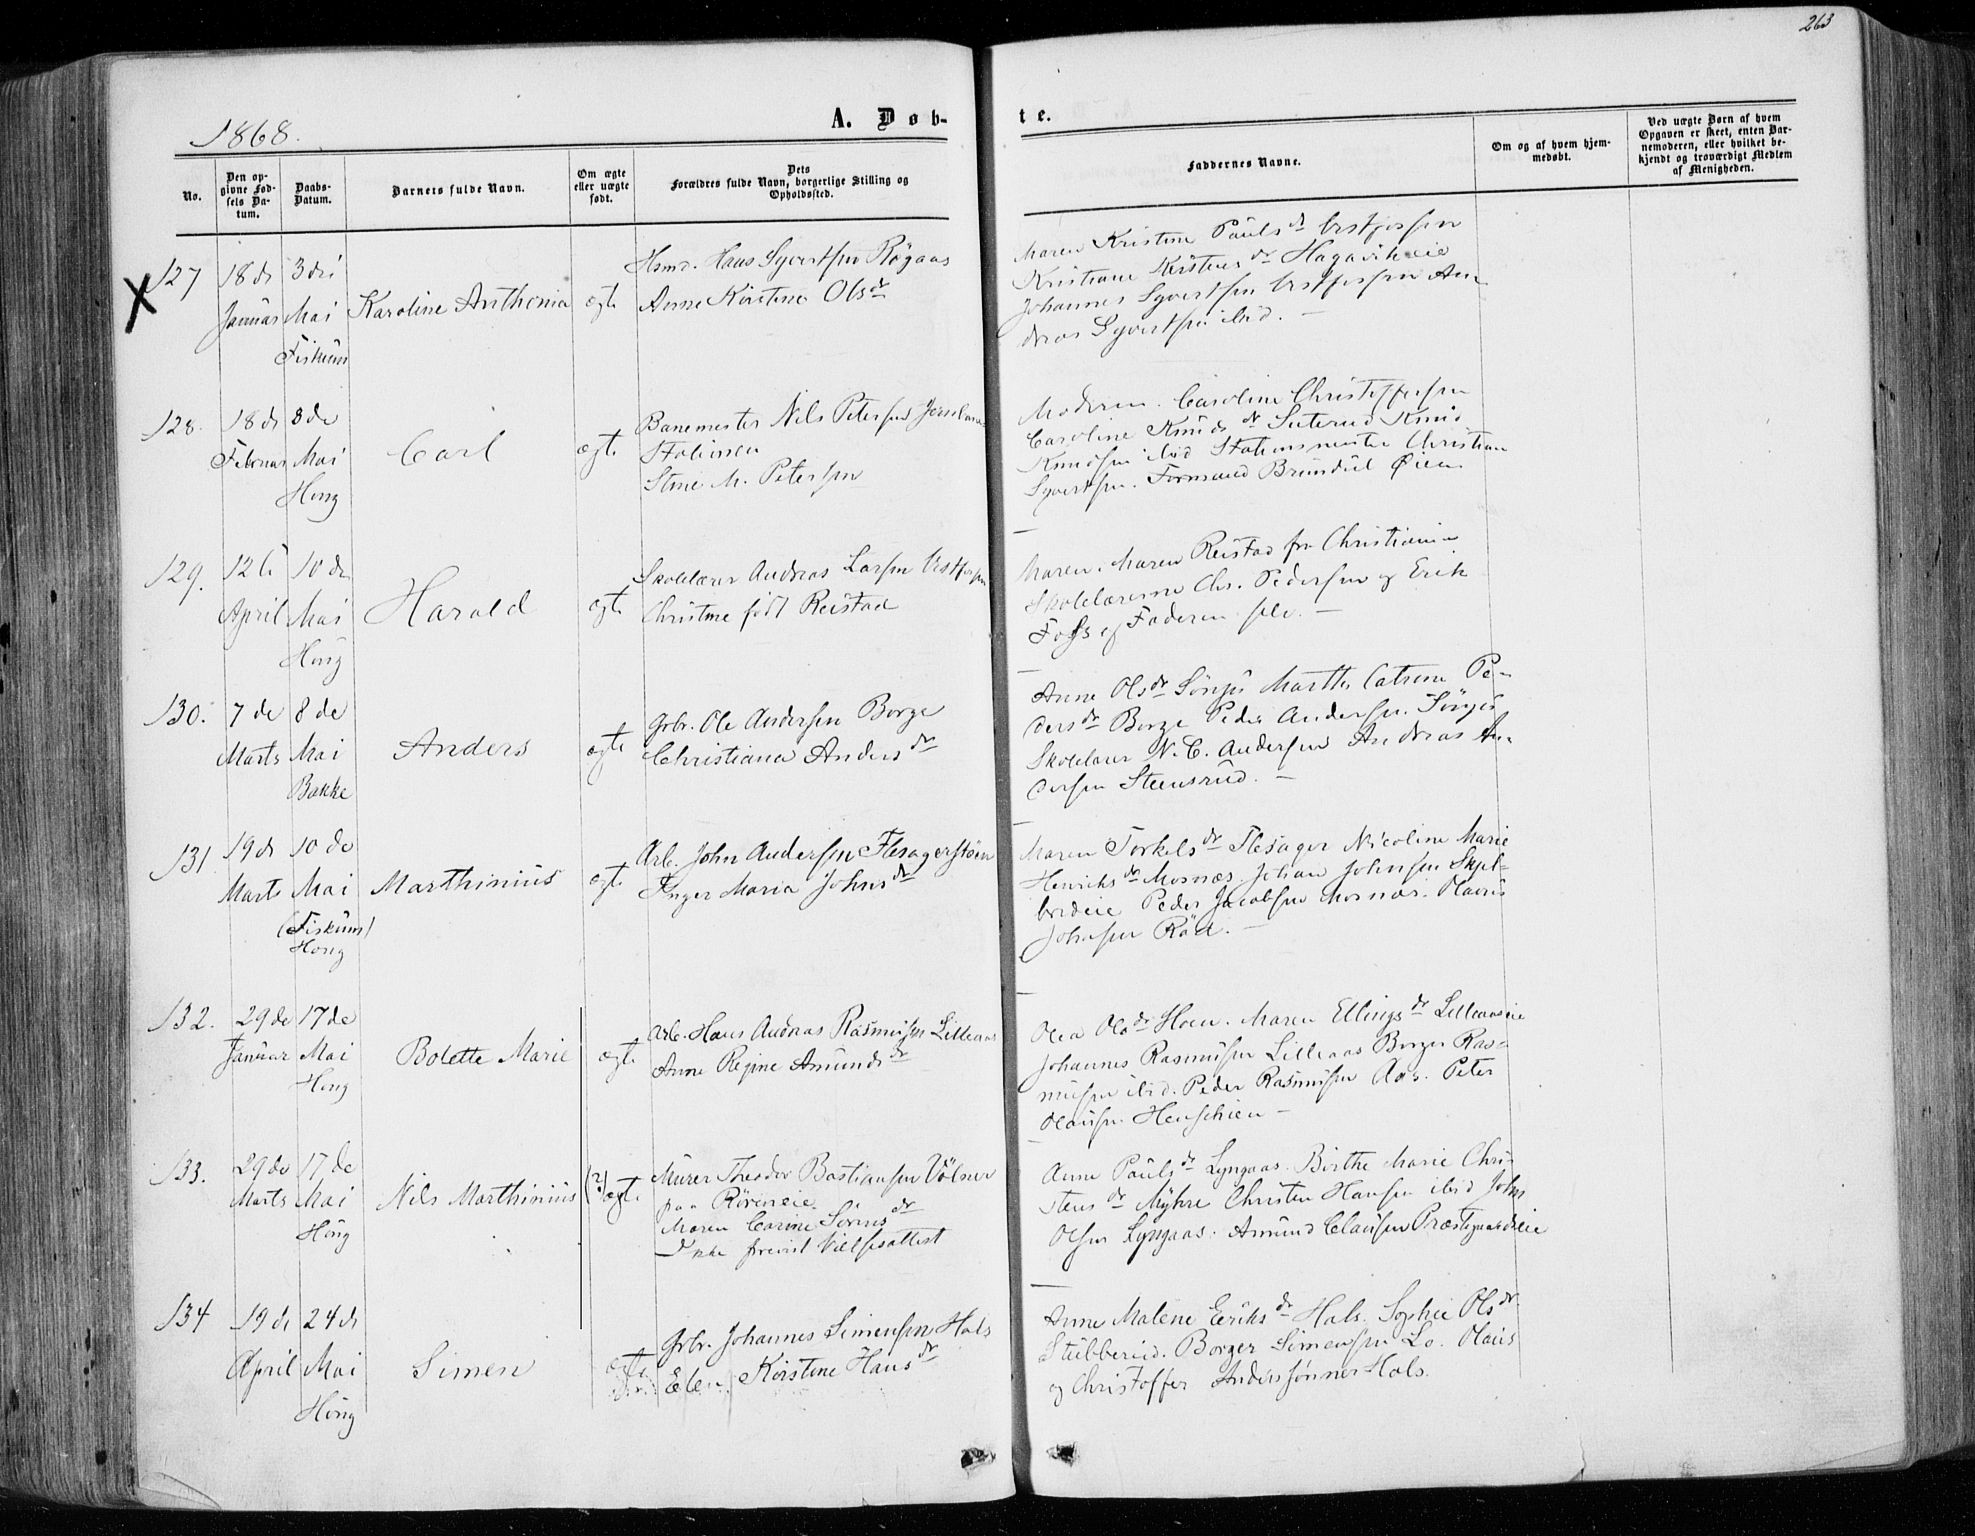 263
1868.
A. Døb-
te.
No.
Den op-
givne Fød-
sels Da-
tum.
Daabs-
Datum.
Barnets fulde Navn.
Om ægte
eller uægte
født.
Dets
Forældres fulde Navn, borgerlige Stilling og
Opholdssted.
Faddernes Navne.
Om og af hvem hjem-
medøbt.
Ved uægte Børn af hvem
Opgaven er skeet, enten Bar-
nemoderen, eller hvilket be-
kjendt og troværdigt Medlem
af Menigheden.
X
127
18de
Januar
3die
Mai
Fiskum
Karoline Anthonia
ægte
Hsmd. Hans Syvertsen Røgaas
Anne Kirstine Olsdr
Maren Kristine Paulsdr Vestfossen
Kristiane Kirstensdr Hagavikeie
Johannes Syvertsen Vestfossen An-
dreas Syvertsen ibid. —
128.
18de
Februar
8de
Mai
Houg
Carl
ægte
Banemester Nils Petersen
Stationen
Stine M. Petersen
Moderen. Caroline Christoffersen
Caroline Knudsdr Knud
Knudsen ibid Stationsmester Christian
Syvertsen. Formand Øien
129.
12te
April
10de
Mai
Houg
Harald
ægte
Skolelærer Andreas Larsen Vestfossen
Christine født Reistad
Maren Reistad fra Christiania
Skolelærerne Chr. Pedersen og Erik
Foss og Faderen selv. —
130.
7de
Marts
8de
Mai
Bakke
Anders
ægte
Gbr. Ole Andersen Borge
Christiana Andersdr
Anne Olsdr Marthe Catrine Pe-
dersdr Borge Peder Andersen
Skolelærer N. C. Andersen Andreas An-
dersen Steensrud. —
131
19de
Marts
10de
Mai
(Fiskum)
Houg
Marthinius
ægte
Arb. John Andersen Flesagerstøen
Inger Maria Johnsdr
Maren Torkelsdr Flesager Nicoline Marie
Henriksdr Mosnæs. Johan Johnsen Skjel-
bredeie Peder Jacobsen Mosnæs. Olaus
Johnsen Rød. —
132.
29de
Januar
17de
Mai
Houg
Bolette Marie
ægte
Arb. Hans Andreas Rasmusen Lilleaas
Anne Regine Amundsdr
Olea Olsdr Hoen. Maren Ellingsdr Lilleaaseie
Johannes Rasmusen Lilleaas Borger Ras-
musen ibid. Peder Rasmusen Aas. Peter
Olausen —
133.
29de
Marts
17de
Mai
Houg
Nils Marthinius
(?)
ægte
Murer Theodor Bastiansen
paa
Maren Carine Sørensdr
Ikke
Anne Paulsdr Lyngaas. Birthe Marie Chri-
stensdr Myhre Christen Hansen ibid John
Olsen Lyngaas. Amund Clausen Præstegaardseie
134
19de
April
24de
Mai
Houg
Simen
ægte
Gbr. Johannes Simensen Hals
Elen Kirstine Hansdr
Anne Malene Eriksdr Hals. Sophie Olsdr
Stubberud. Borger Simensen Lo. Olaus
og Christoffer Anderssønner Hals.